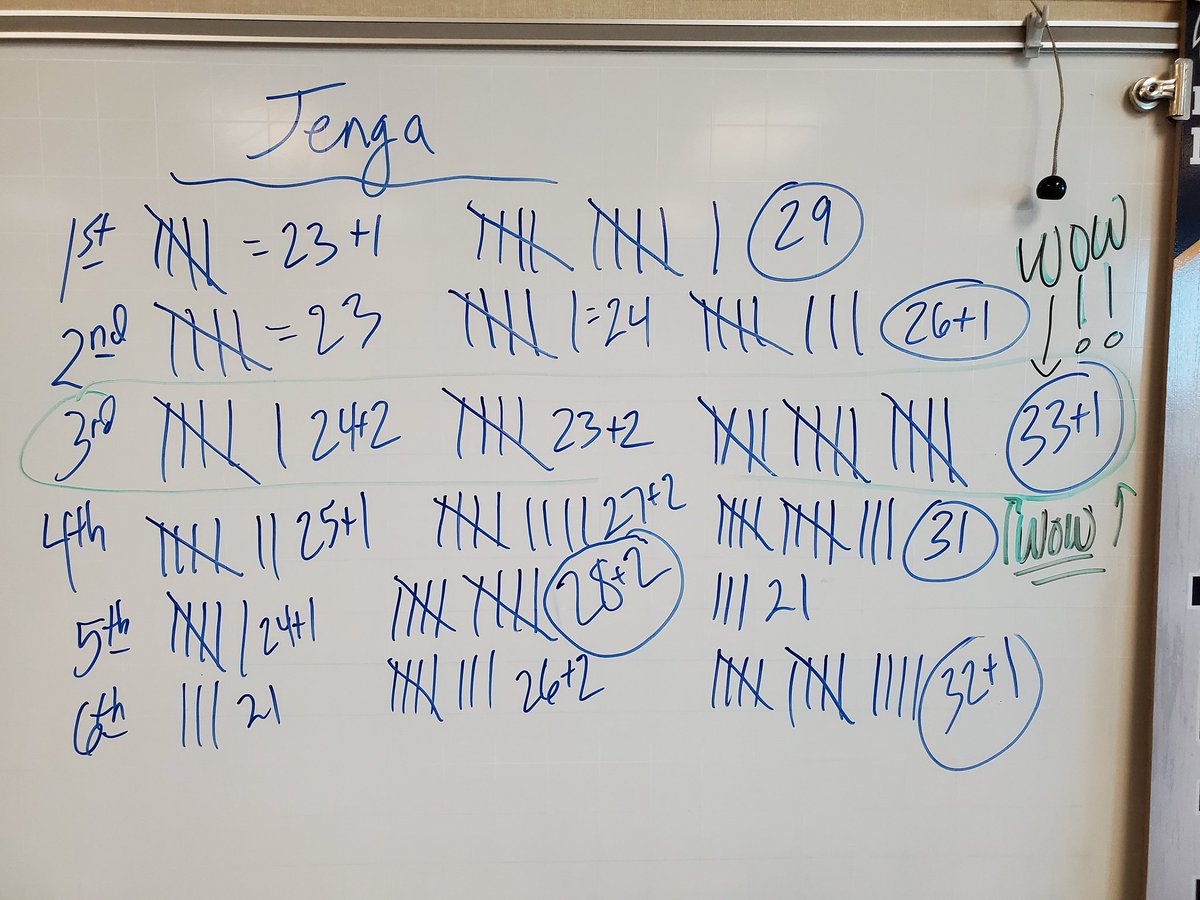 Jenga
1st = 23 +1 29
2nd = 23 = 24 26+1
3rd 24+2 23+2 33+1
4th 25+1 27+2 31
5th 24+1 28+2 21
6th 21 26+2 32+1
WOW
!!
WOW